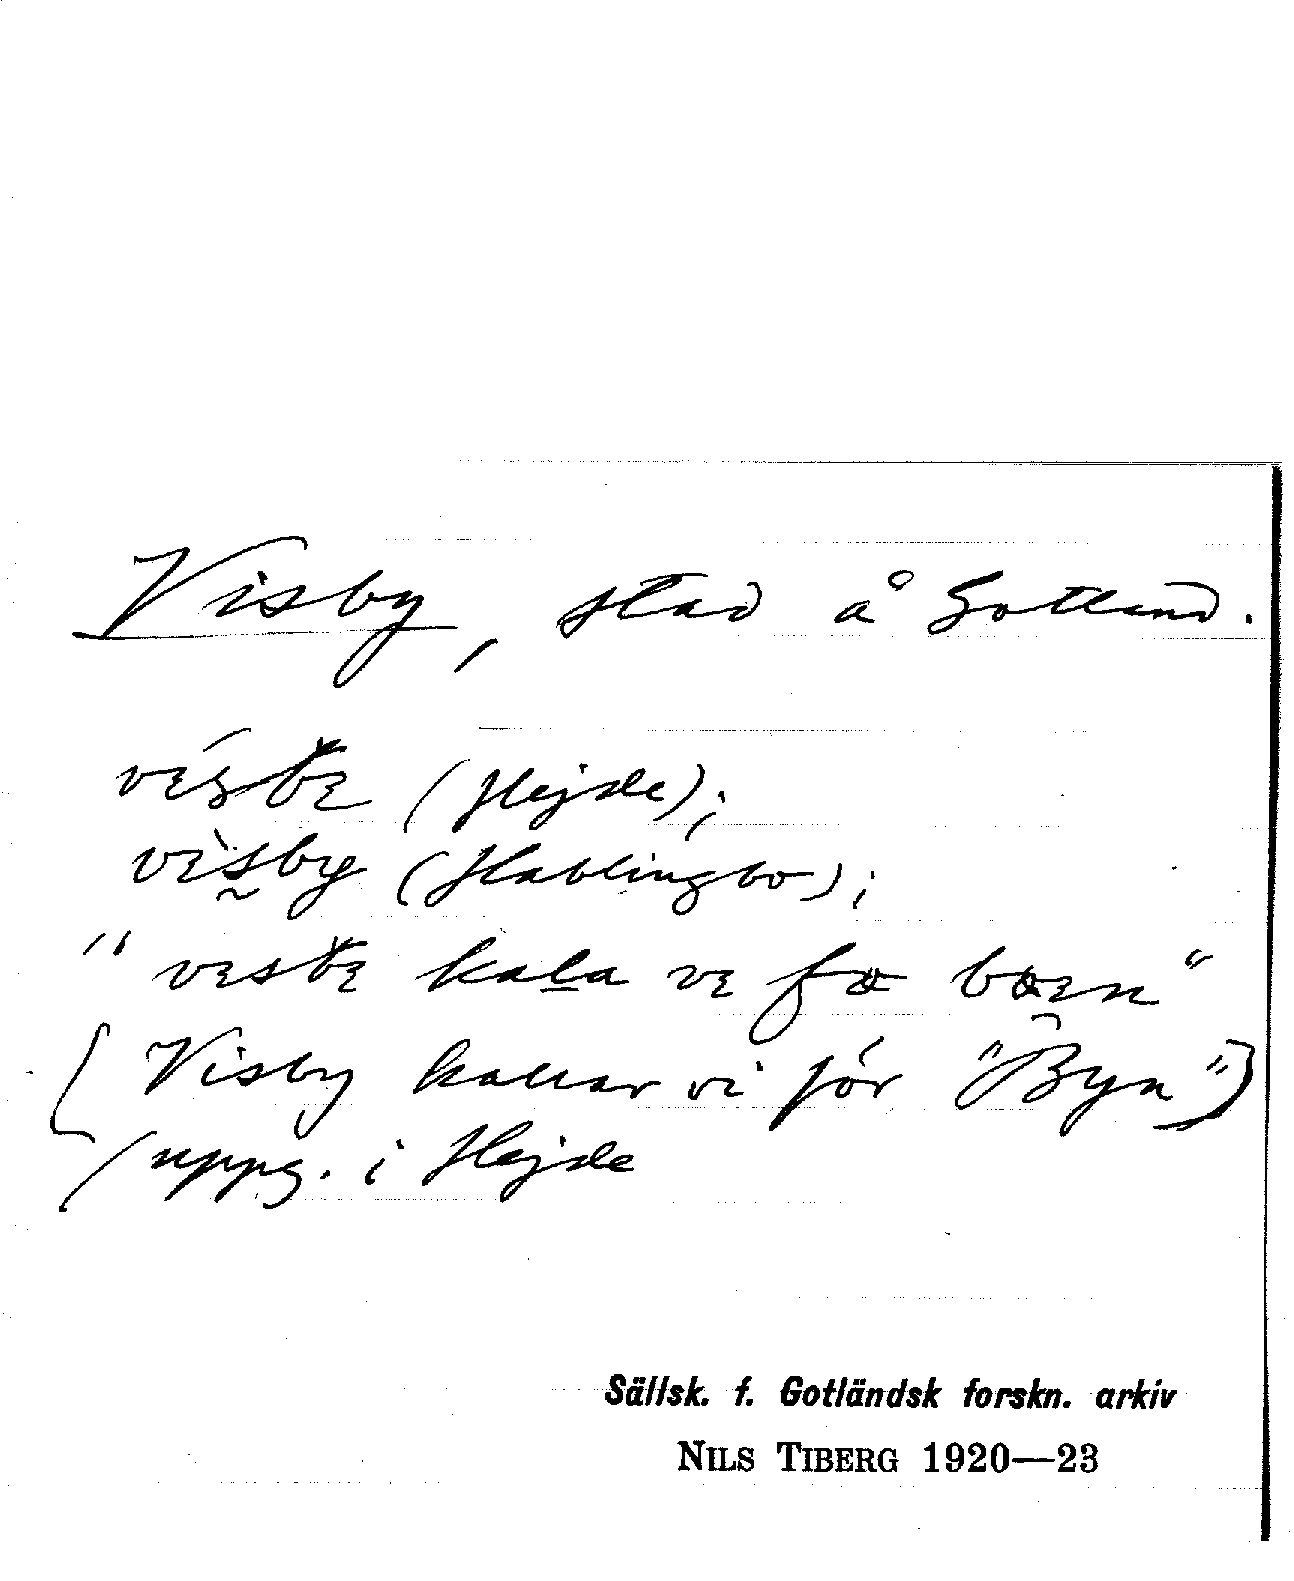 Visby, stad å Gotland.
(Hejde);
visby (Hablingbo);
"
[Visby kallar vi för "Byn"]
(uppg. i Hejde
Sällsk. f. Gotländsk forskn. arkiv
NILS TIBERG 1920—23